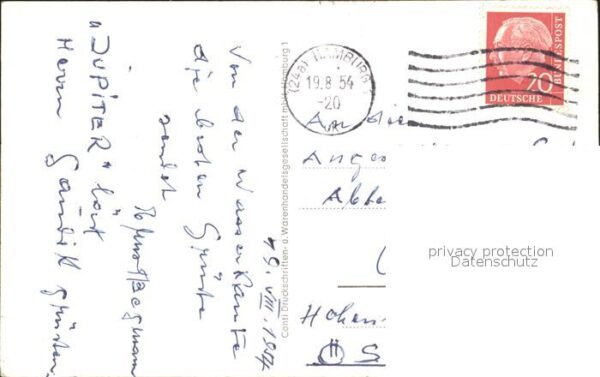 Von der Wasserkante
die besten Grüße
sendet
19. VIII. 1954
"JUPITER" läßt
Herrn
grüßen.
Conti Druckschriften- u. Warenhandelsgesellschaft mbH. Hamburg 1
(24a) HAMBURG
19.8 54
-20
20
DEUTSCHE
BUNDESPOST
An die
Anges
Abte
Hohen-
Ö S
privacy protection
Datenschutz